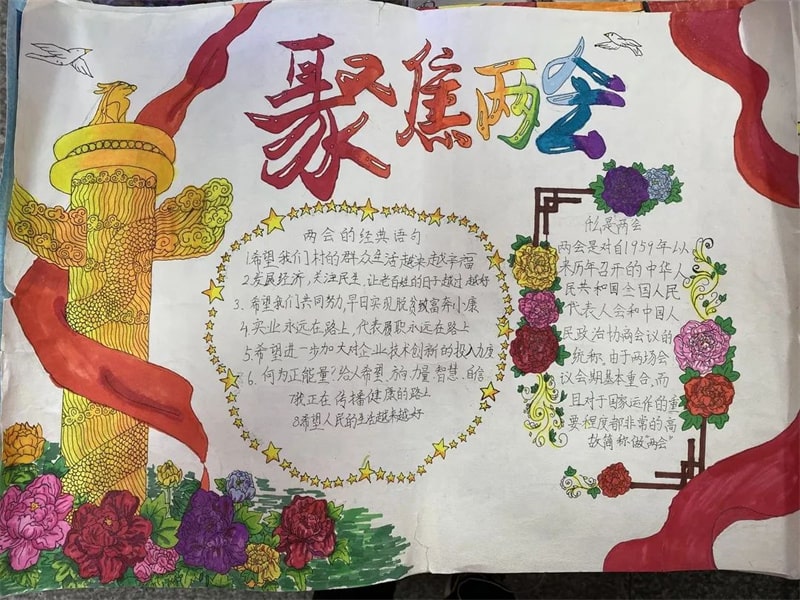 聚焦两会
两会的经典语句
1希望我们村的群众生活越来越幸福
2发展经济,关注民生,让老百姓的日子越过越好
3、希望我们共同努力,早日实现脱贫致富奔小康
4、实业永远在路上,代表履职永远在路上
5、希望进一步加大对企业技术创新的投入力度
6、何为正能量?给人希望、方向、力量、智慧、自信
7我正在传播健康的路上
8希望人民的生活越来越好
什么是两会
两会是对自1959年以
来历年召开的中华人
民共和国全国人民
代表人会和中国人
民政治协商会议的
统称、由于两场会
议会期基本重合,而
且对于国家运作的重
要程度都非常的高
故简称做“两会”